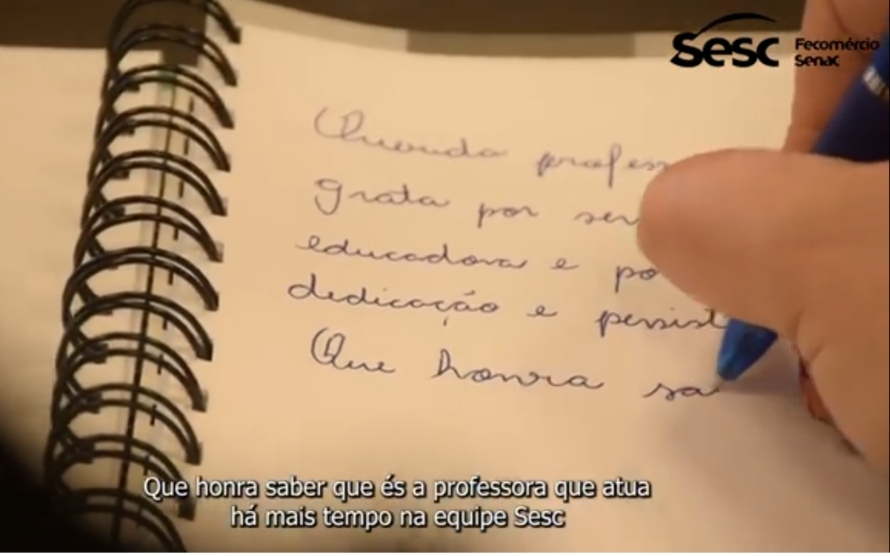 Sesc Fecomércio
Senac
Querida profess
grata por ser
educadora e po
dedicação e persist
Que honra sa
Que honra saber que és a professora que atua
há mais tempo na equipe Sesc